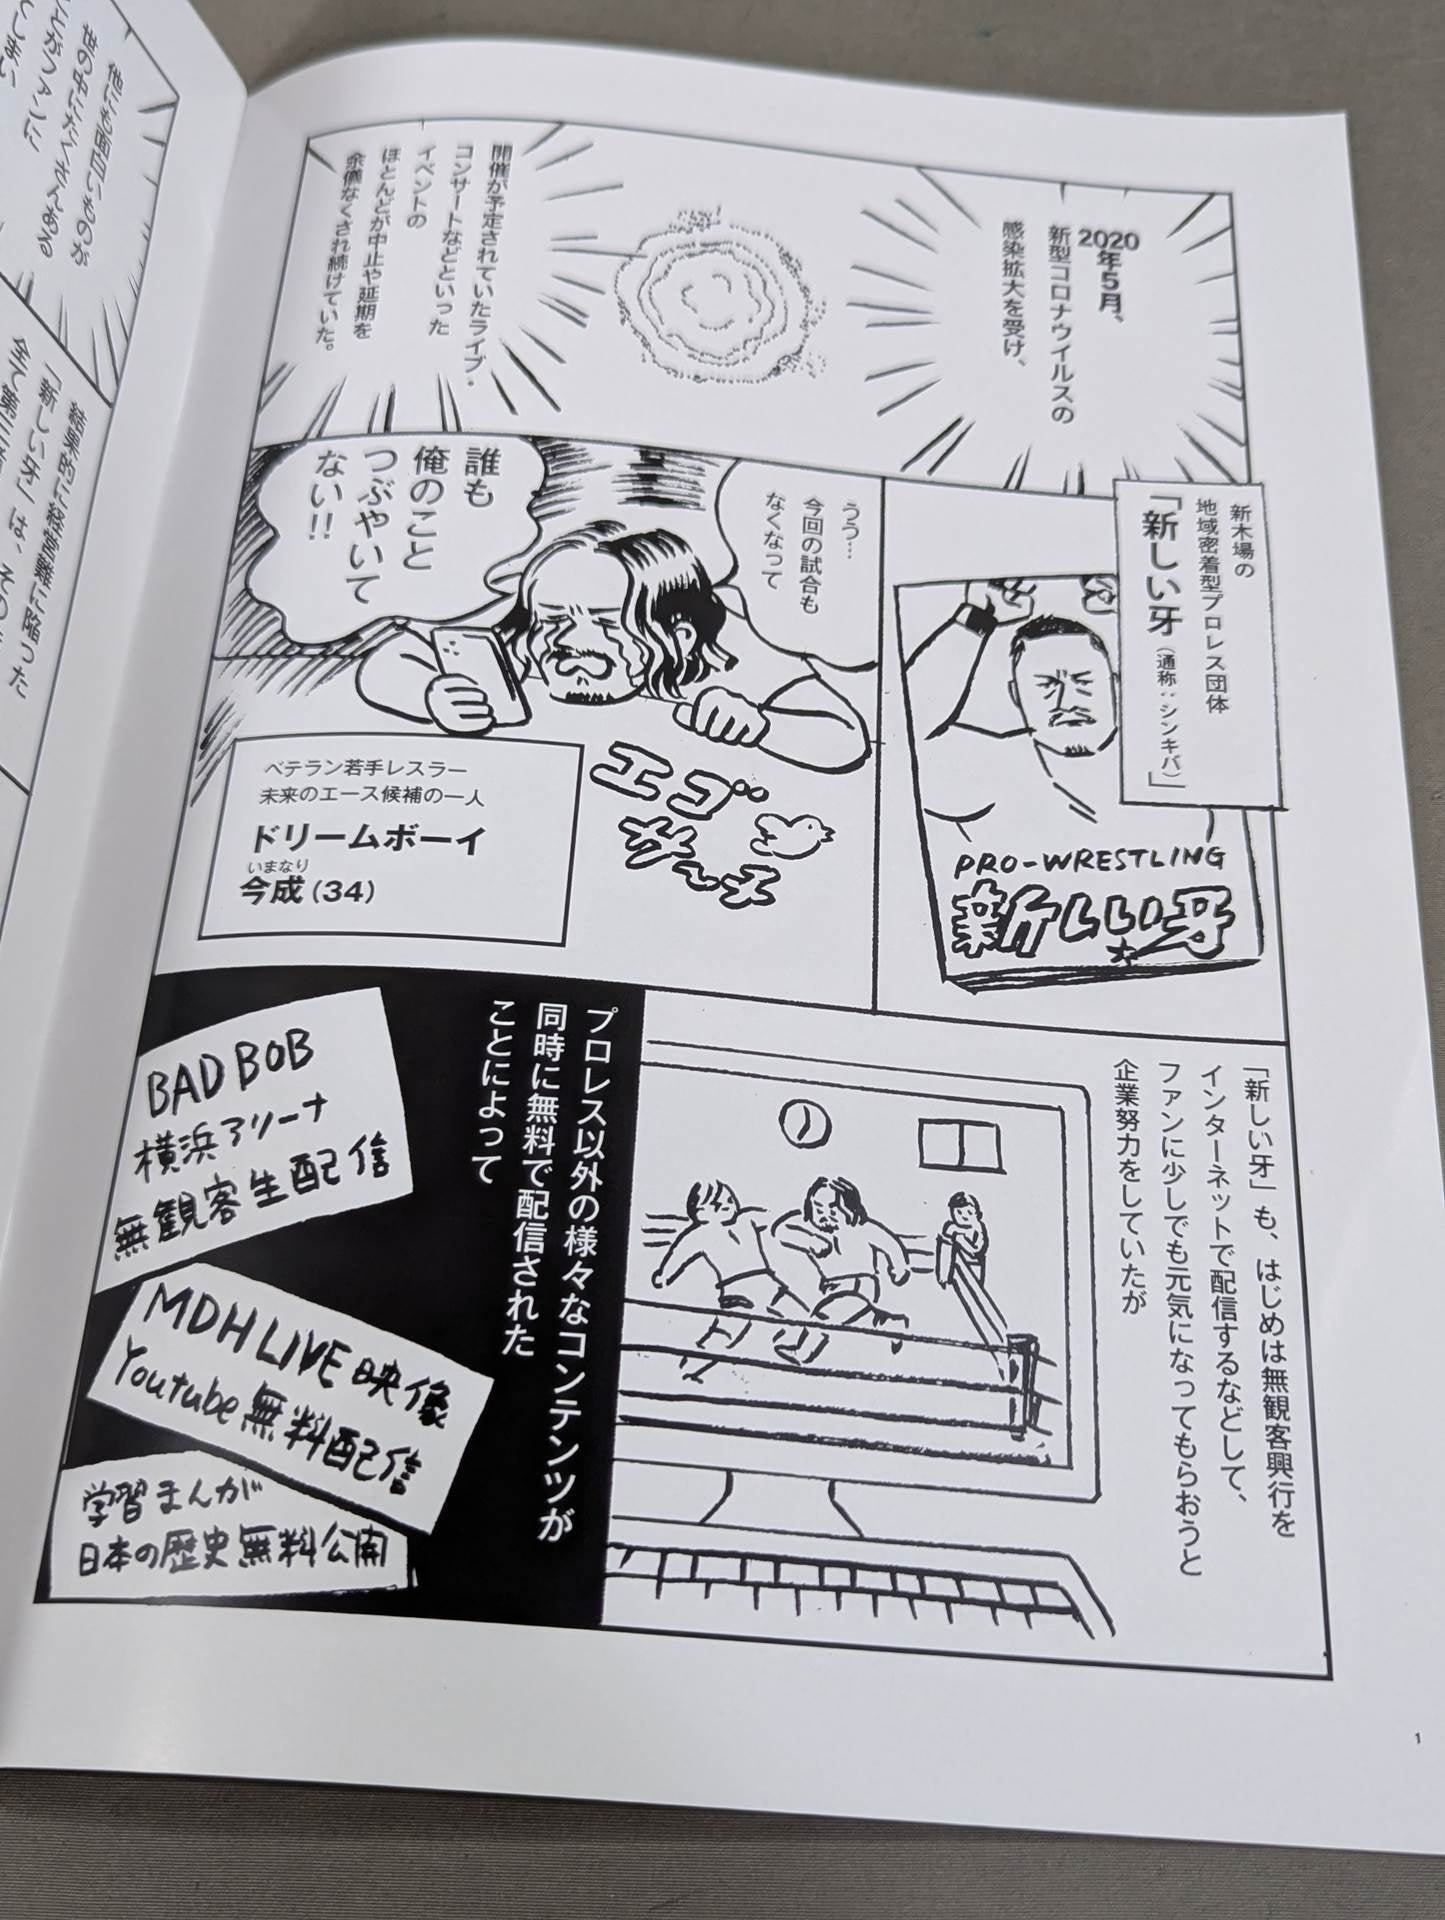 2020年5月、
新型コロナウイルスの
感染拡大を受け、
開催が予定されていたライブ・
コンサートなどといった
イベントの
ほとんどが中止や延期を
余儀なくされ続けていた。
新木場の
地域密着型プロレス団体
「新しい牙(通称:シンキバ)」
PRO-WRESTLING
新しい牙
うう…
今回の試合も
なくなって
誰も
俺のこと
つぶやいて
ない!!
エゴ
サーチ
ベテラン若手レスラー
未来のエース候補の一人
ドリームボーイ
いまなり
今成(34)
「新しい牙」も、はじめは無観客興行を
インターネットで配信するなどして、
ファンに少しでも元気になってもらおうと
企業努力をしていたが
プロレス以外の様々なコンテンツが
同時に無料で配信された
ことによって
BAD BOB
横浜アリーナ
無観客生配信
MDH LIVE映像
Youtube無料配信
学習まんが
日本の歴史無料公開
1
他にも面白いものが
世の中にたくさんある
とがファンに
くしまい
結果的に経営難に陥った
「新しい牙」は、その
全て第三